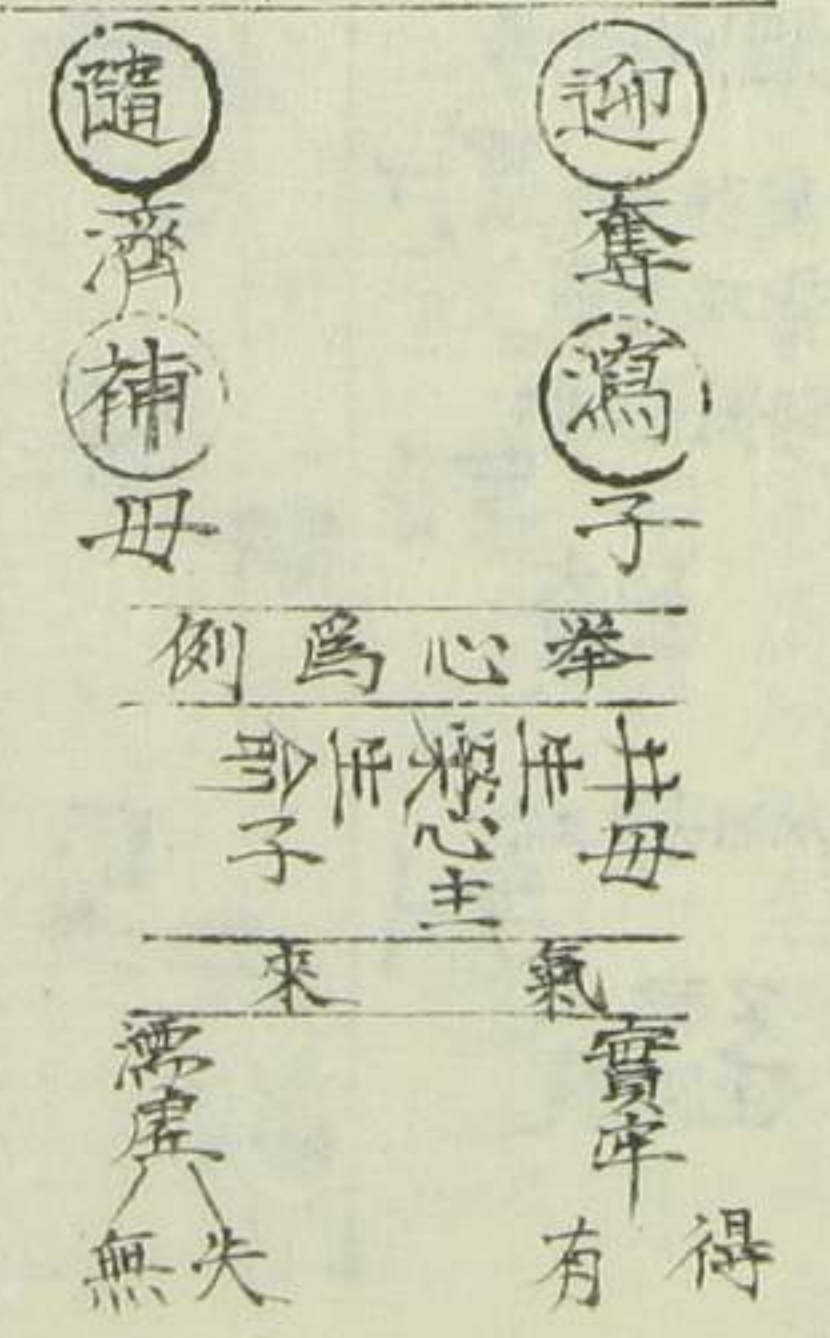 迎奪瀉子
隨濟補母
举心爲例
井母
生
滎心主
生
俞子
氣來
實牢
得
有
濡虛
失
無